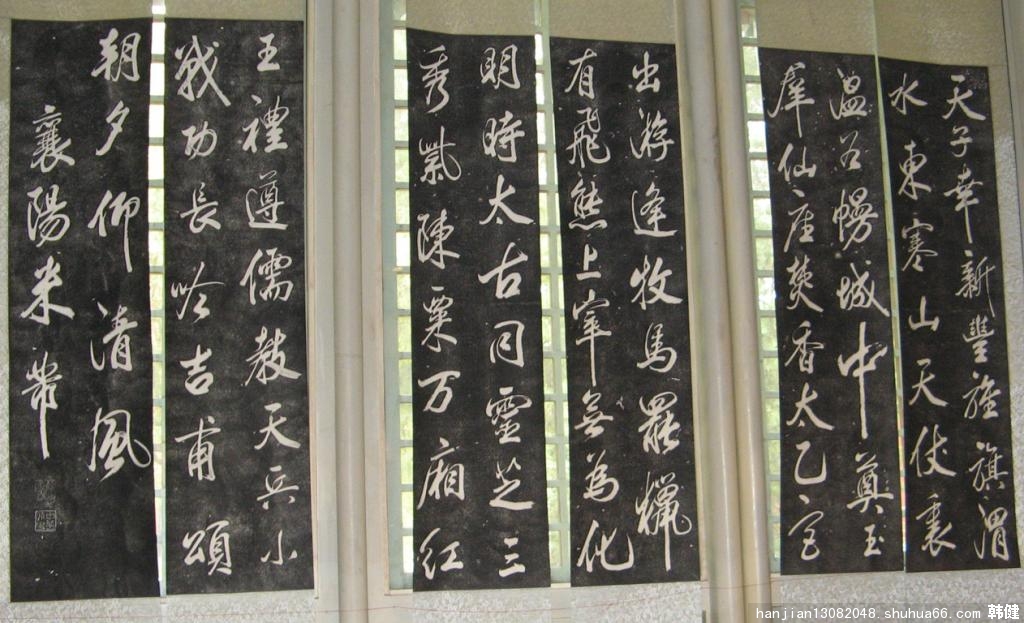 天子幸新豐旌旗渭
水東寒山天仗裏
溫谷幔城中奠玉
羣仙座焚香太乙宮
出游逢牧馬罷獵
有飛熊上宰無為化
明時太古同靈芝三
秀紫陳粟万廂紅
王禮遵儒教天兵小
戰功長吟吉甫頌
朝夕仰清風
襄陽米芾
hanjian13082048.shuhua66.com 韩健